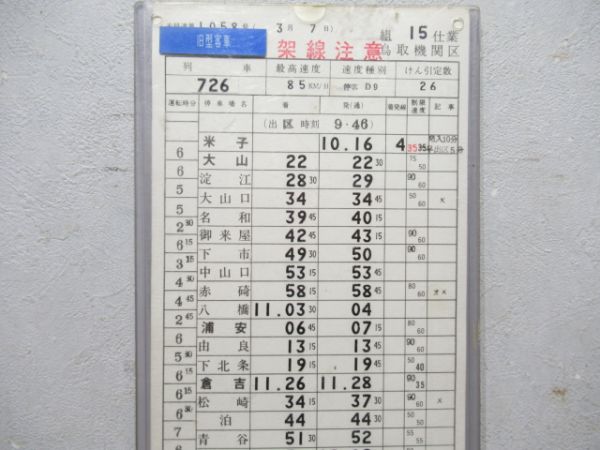 1058 3月 7日) 組 15仕業
旧型客車 架線注意 鳥取機関区
列車 最高速度 速度種別 けん引定数
726 85KM/H 停客 D9 26
運転時分 停車場名 着 発(通) 着発線 制限速度 記事
(出区時刻 9・46)
米子 10.16 4 35 35
6 大山 22 22 30 75 50
6 淀江 28 30 29 90 60
5 大山口 34 34 45 50 60 ×
5 名和 39 45 40 15
2 30 御来屋 42 45 43 15 90 60
6 15 下市 49 30 50 90 60
3 15 中山口 53 15 53 45
4 30 赤碕 58 15 58 45 80 60 オ×
4 45 八橋 11.03 30 04
2 45 浦安 06 45 07 15 80 60
6 由良 13 15 13 45 90 60
5 30 下北条 19 15 19 45 50 40
6 15 倉吉 11.26 11.28 90 35
6 15 松崎 34 15 37 30 90 60 ×
6 30 泊 44 44 30 50 60
7 青谷 51 30 52 55 55